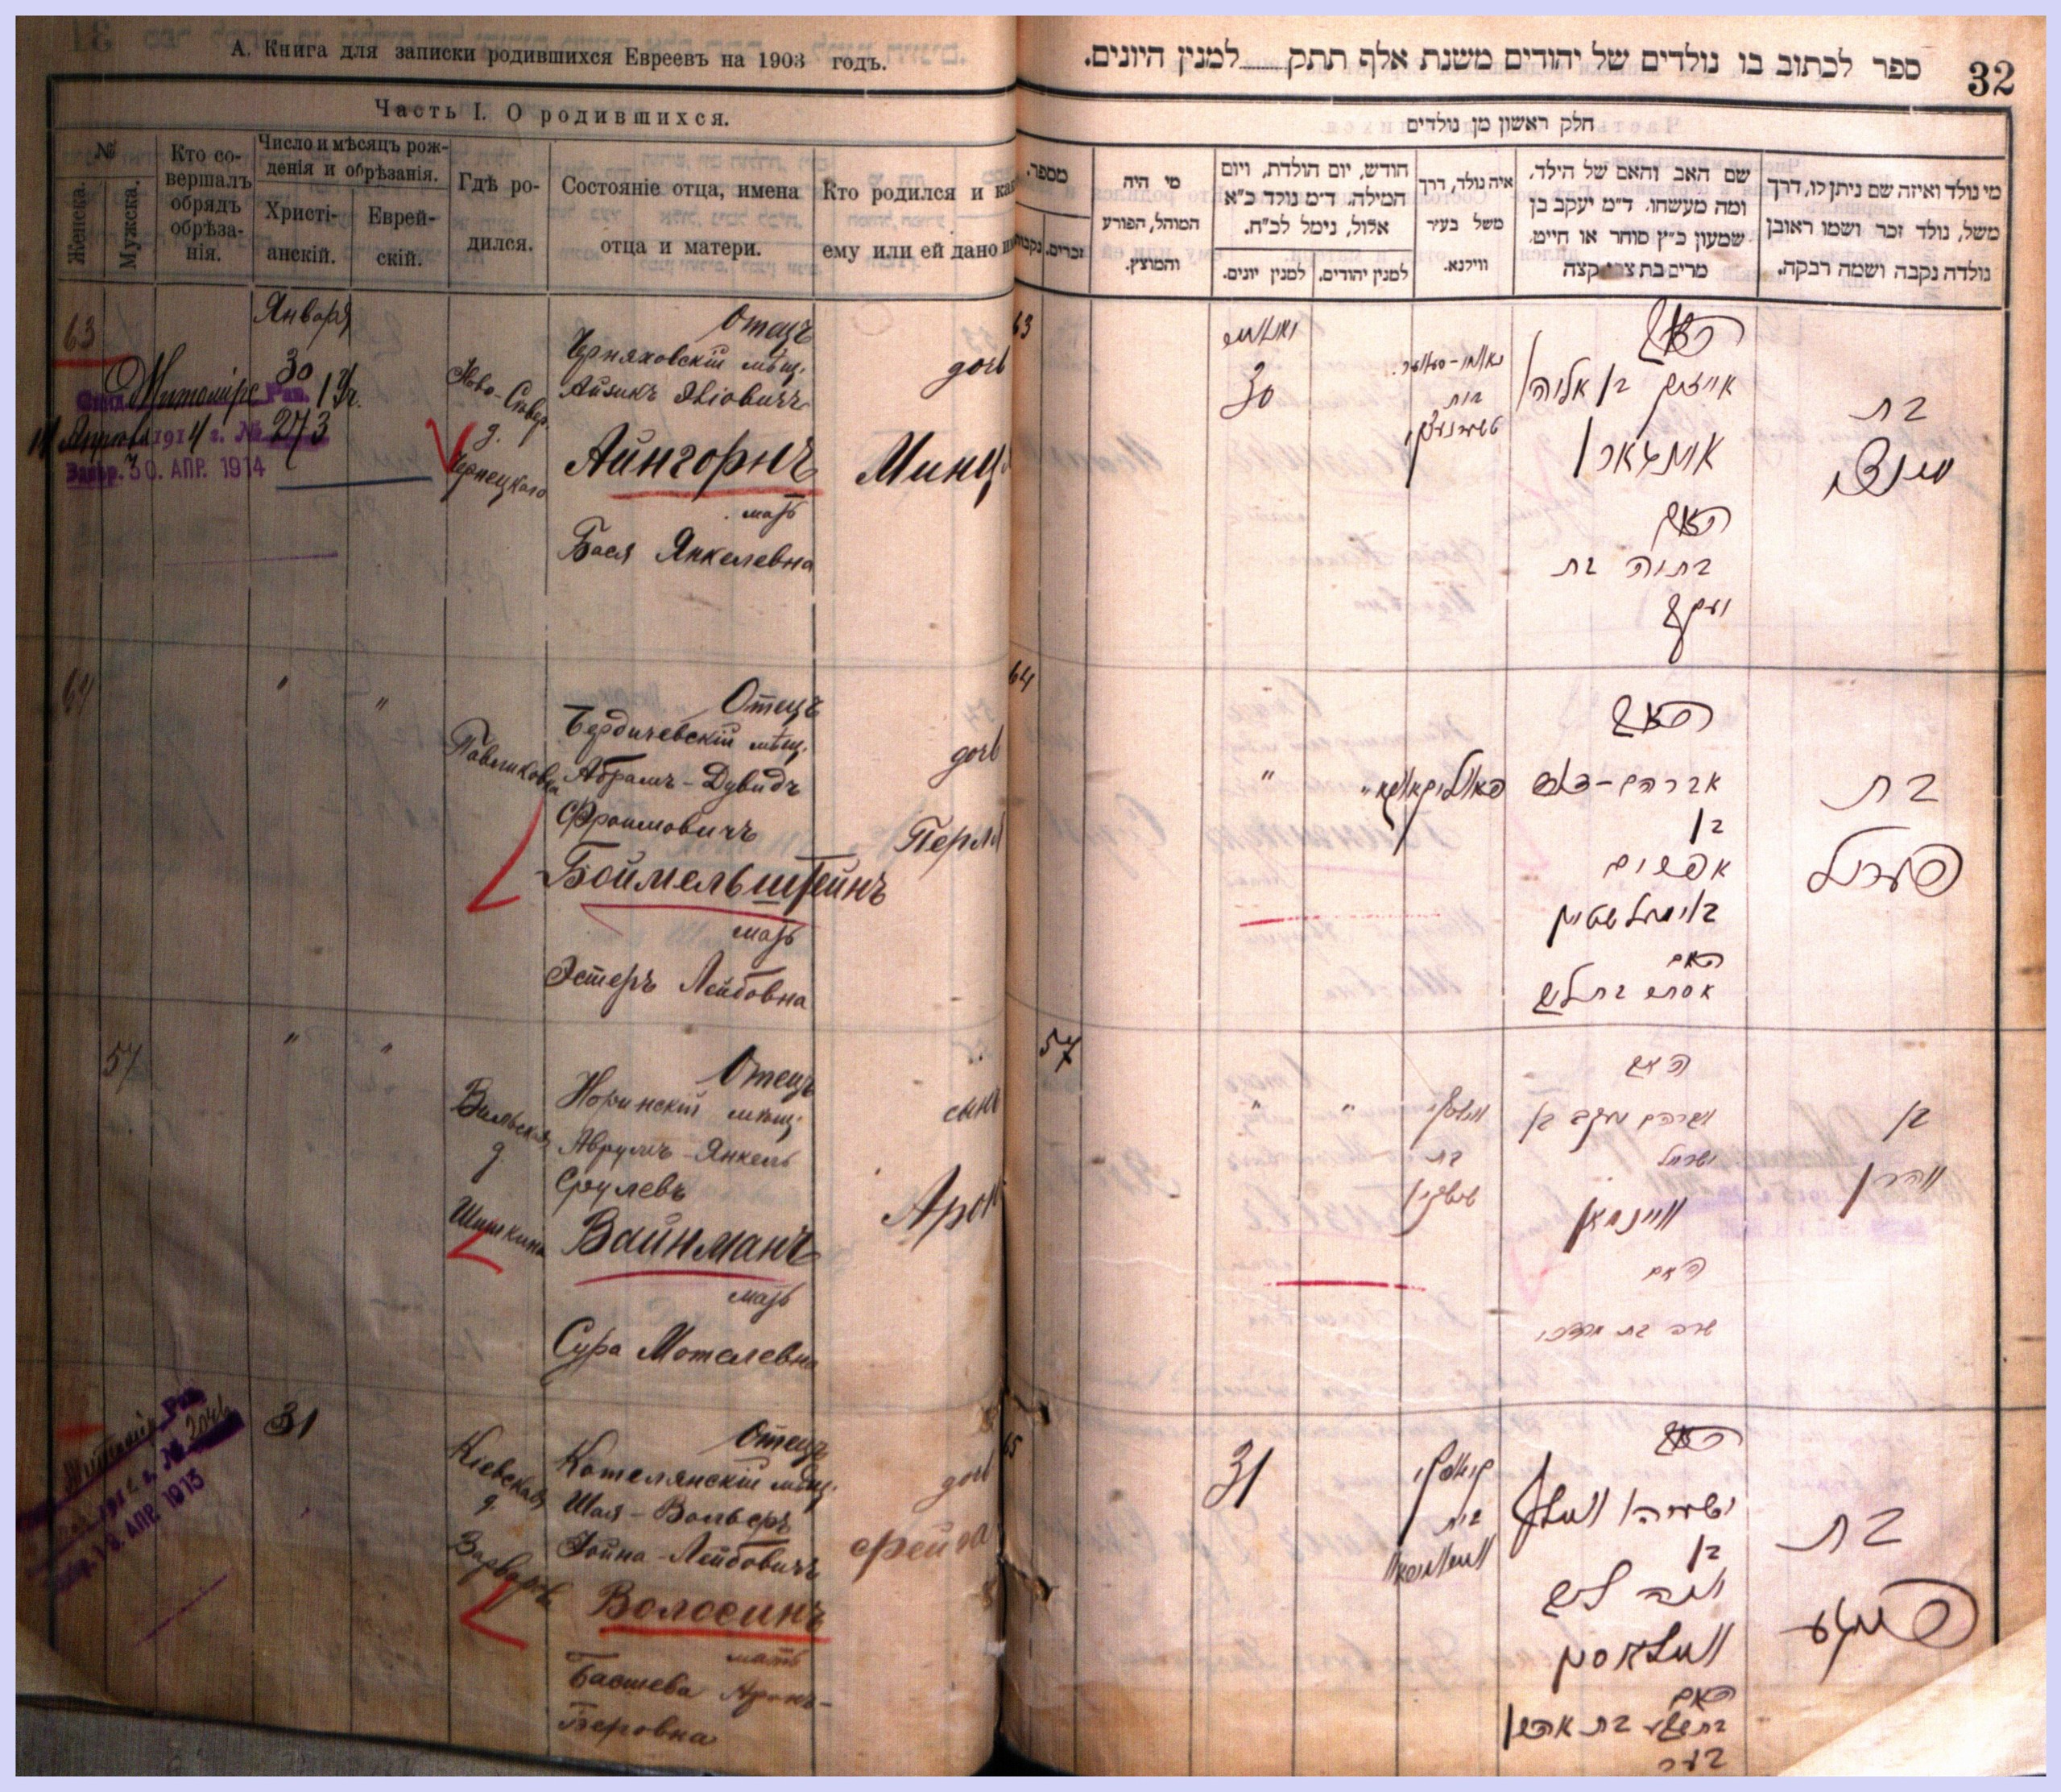 А. Книга для записки родившихся Евреевъ на 1903 годъ.
Часть I. О родившихся.
№
Женска.
Мужска.
Кто со-
вершалъ
обрядъ
обрѣза-
нія.
Число и мѣсяцъ рож-
денія и обрѣзанія.
Христі-
анскій.
Еврей-
скій.
Гдѣ ро-
дился.
Состояніе отца, имена
отца и матери.
Кто родился и ка
ему или ей дано и
63
Января
30
273
30. АПР. 1914
Ново-Сѣвер.
д.
Чернецкаго
Отецъ
Черняховскій мѣщ.
Айзикъ Эліовичъ
Айнгорнъ
мать
Бася Янкелевна
дочь
Минц
64
"
"
Павликовка
Отецъ
Бердичевскій мѣщ.
Абрамъ-Дувидъ
Фроимовичъ
Боймельштейнъ
мать
Эстеръ Лейбовна
дочь
Перля
57
"
"
Вильская
д.
Шишкина
Отецъ
Норинскій мѣщ.
Аврумъ-Янкель
Срулевъ
Вайнманъ
мать
Сура Мотелевна
сынъ
Арон
31
АПР. 1913
Кіевская
д.
Отецъ
Котелянскій мѣщ.
Шая-Вольверъ
Іойна-Лейбовичъ
Волосинъ
мать
Басшева Аронъ-
Беровна
дочь
Фейга
ספר לכתוב בו נולדים של יהודים משנת אלף תתק למנין היונים.
32
חלק ראשון מן נולדים
מספר.
זכרים.
נקבות
מי היה
המוהל, הפורע
והמוצץ.
חודש, יום הולדת, ויום
המילה. ד״מ נולד כ״א
אלול, נימל לכ״ח.
למנין יונים.
למנין יהודים.
איה נולד, דרך
משל בעיר
ווילנא.
שם האב והאם של הילד,
ומה מעשהו. ד״מ יעקב בן
שמעון כ״ץ סוחר או חייט.
מרים בת צבי קצה
מי נולד ואיזה שם ניתן לו, דרך
משל, נולד זכר ושמו ראובן
נולדה נקבה ושמה רבקה.
63
30
האב
אייזיק בן אליהו
איינהארן
האם
בתיה בת
יעקב
בת
מינצי
64
"
האב
אברהם-דוד
בן
אפרים
בוימעלשטיין
האם
אסתר בת לייב
בת
פערל
57
"
"
האב
אברהם יעקב בן
ישראל
וויינמאן
האם
שרה בת מרדכי
בן
אהרן
65
31
בית
האב
ישעיהו וואלף
בן
יונה לייב
וואלאסין
האם
בתשבע בת אהרן
בער
בת
פייגע